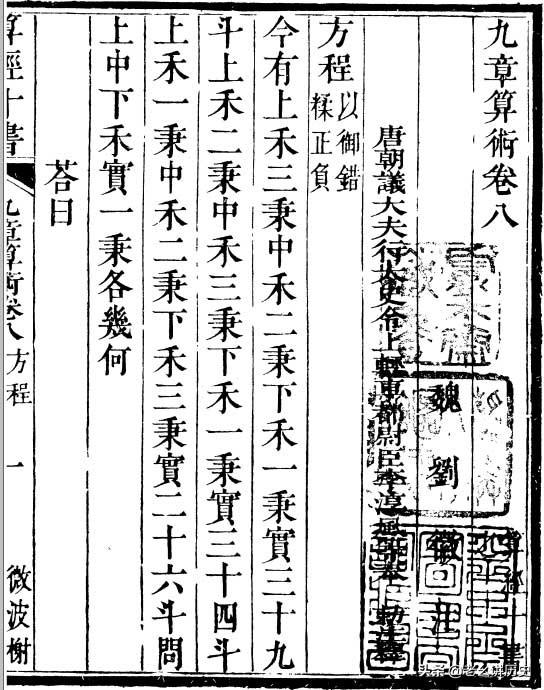 九章算術卷八
魏 劉 徽 注
唐朝議大夫行太史令上輕車都尉臣李淳風等奉 勑注釋
方程以御錯
糅正負
今有上禾三秉中禾二秉下禾一秉實三十九
斗上禾二秉中禾三秉下禾一秉實三十四斗
上禾一秉中禾二秉下禾三秉實二十六斗問
上中下禾實一秉各幾何
荅曰
算經十書
九章算術卷八 方程
一
微波榭